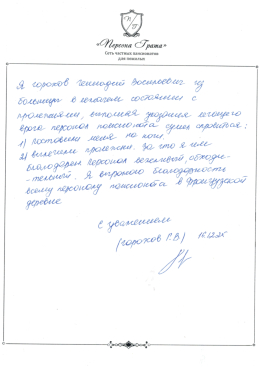 «Персона Грата»
Сеть частных пансионатов
для пожилых
Я Горохов Геннадий Васильевич из
больницы в лежачем состоянии с
пролежнями, выполняя указания лечащего
врача персонал пансионата сумел справиться:
1) поставили меня на ноги,
2) вылечили пролежни. За что я им
благодарен персонал вежливый, обходи-
-тельный. Я выражаю благодарность
всему персоналу пансионата в Французской
деревне
С уважением
(Горохов Г.В)